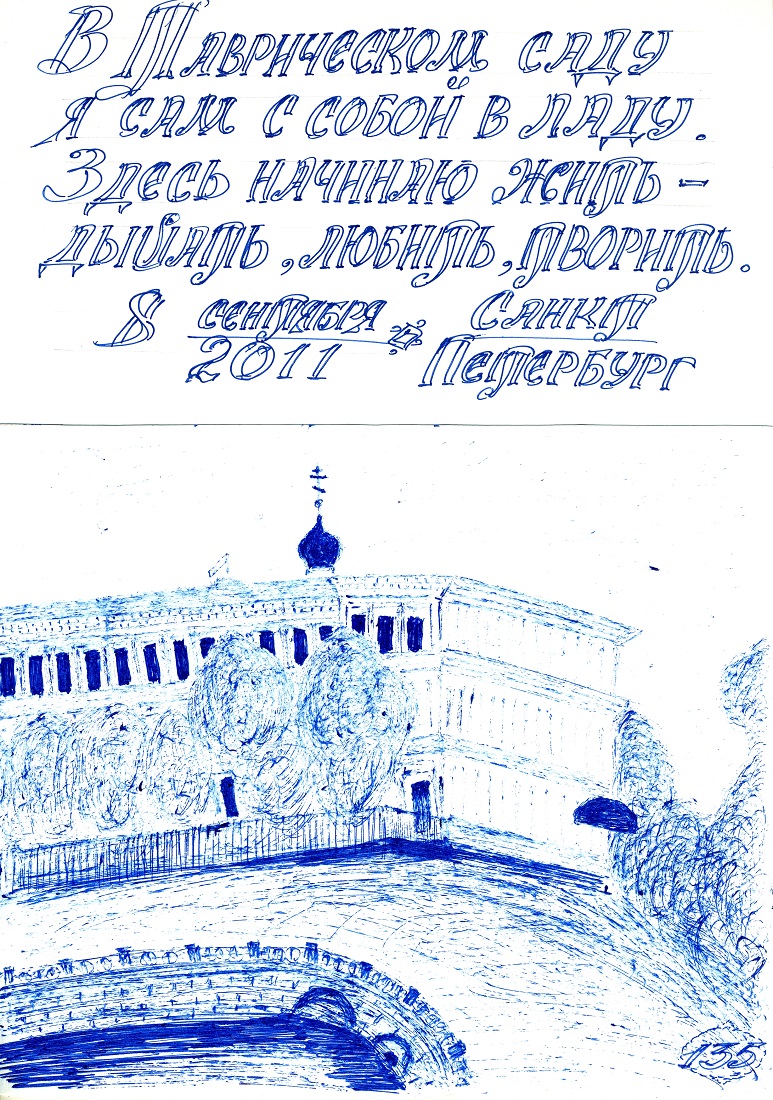 В Таврическом саду
я сам с собой в ладу.
Здесь начинаю жить -
дышать, любить, творить.
8 сентября 2011 г. Санкт
Петербург
135